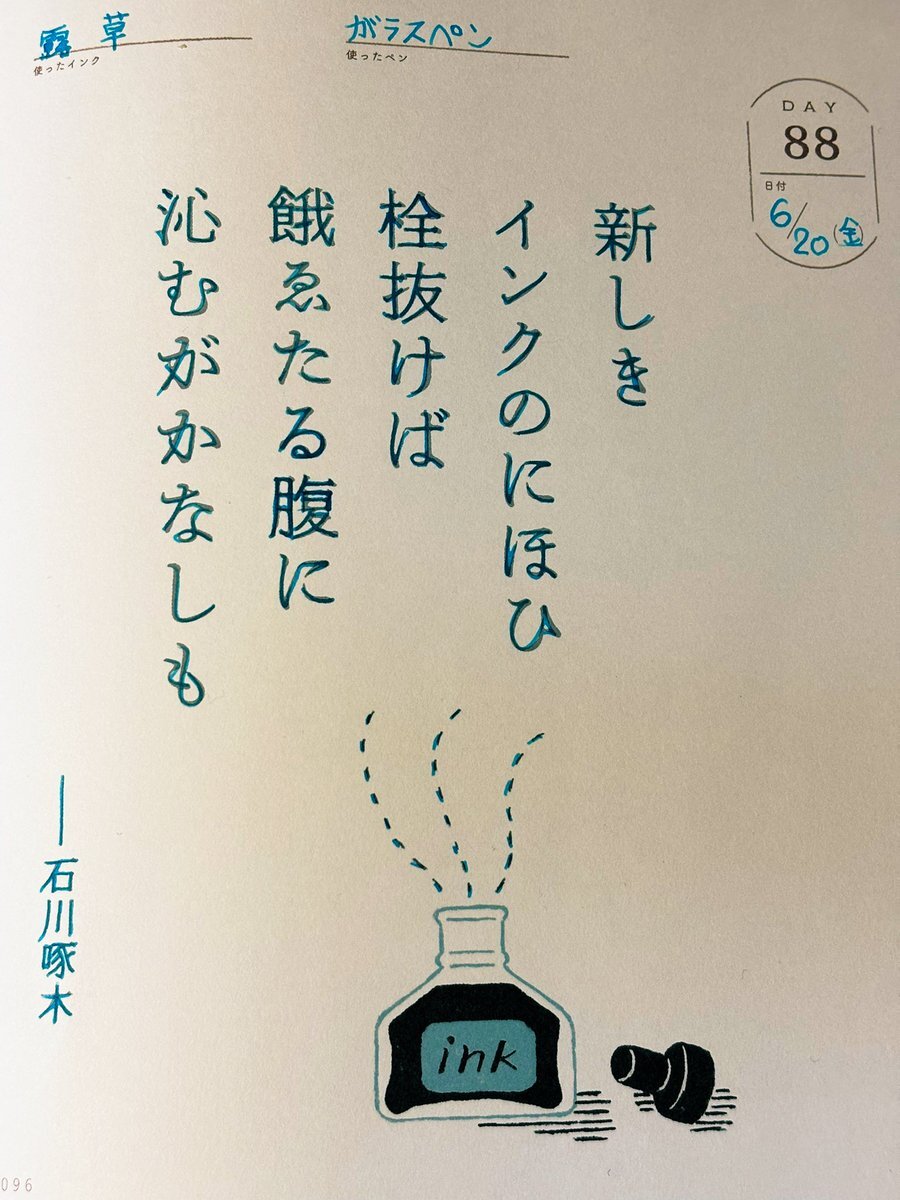 露草
使ったインク
ガラスペン
使ったペン
DAY
88
日付
6/20(金)
新しき
インクのにほひ
栓抜けば
餓ゑたる腹に
沁むがかなしも
――石川啄木
ink
096